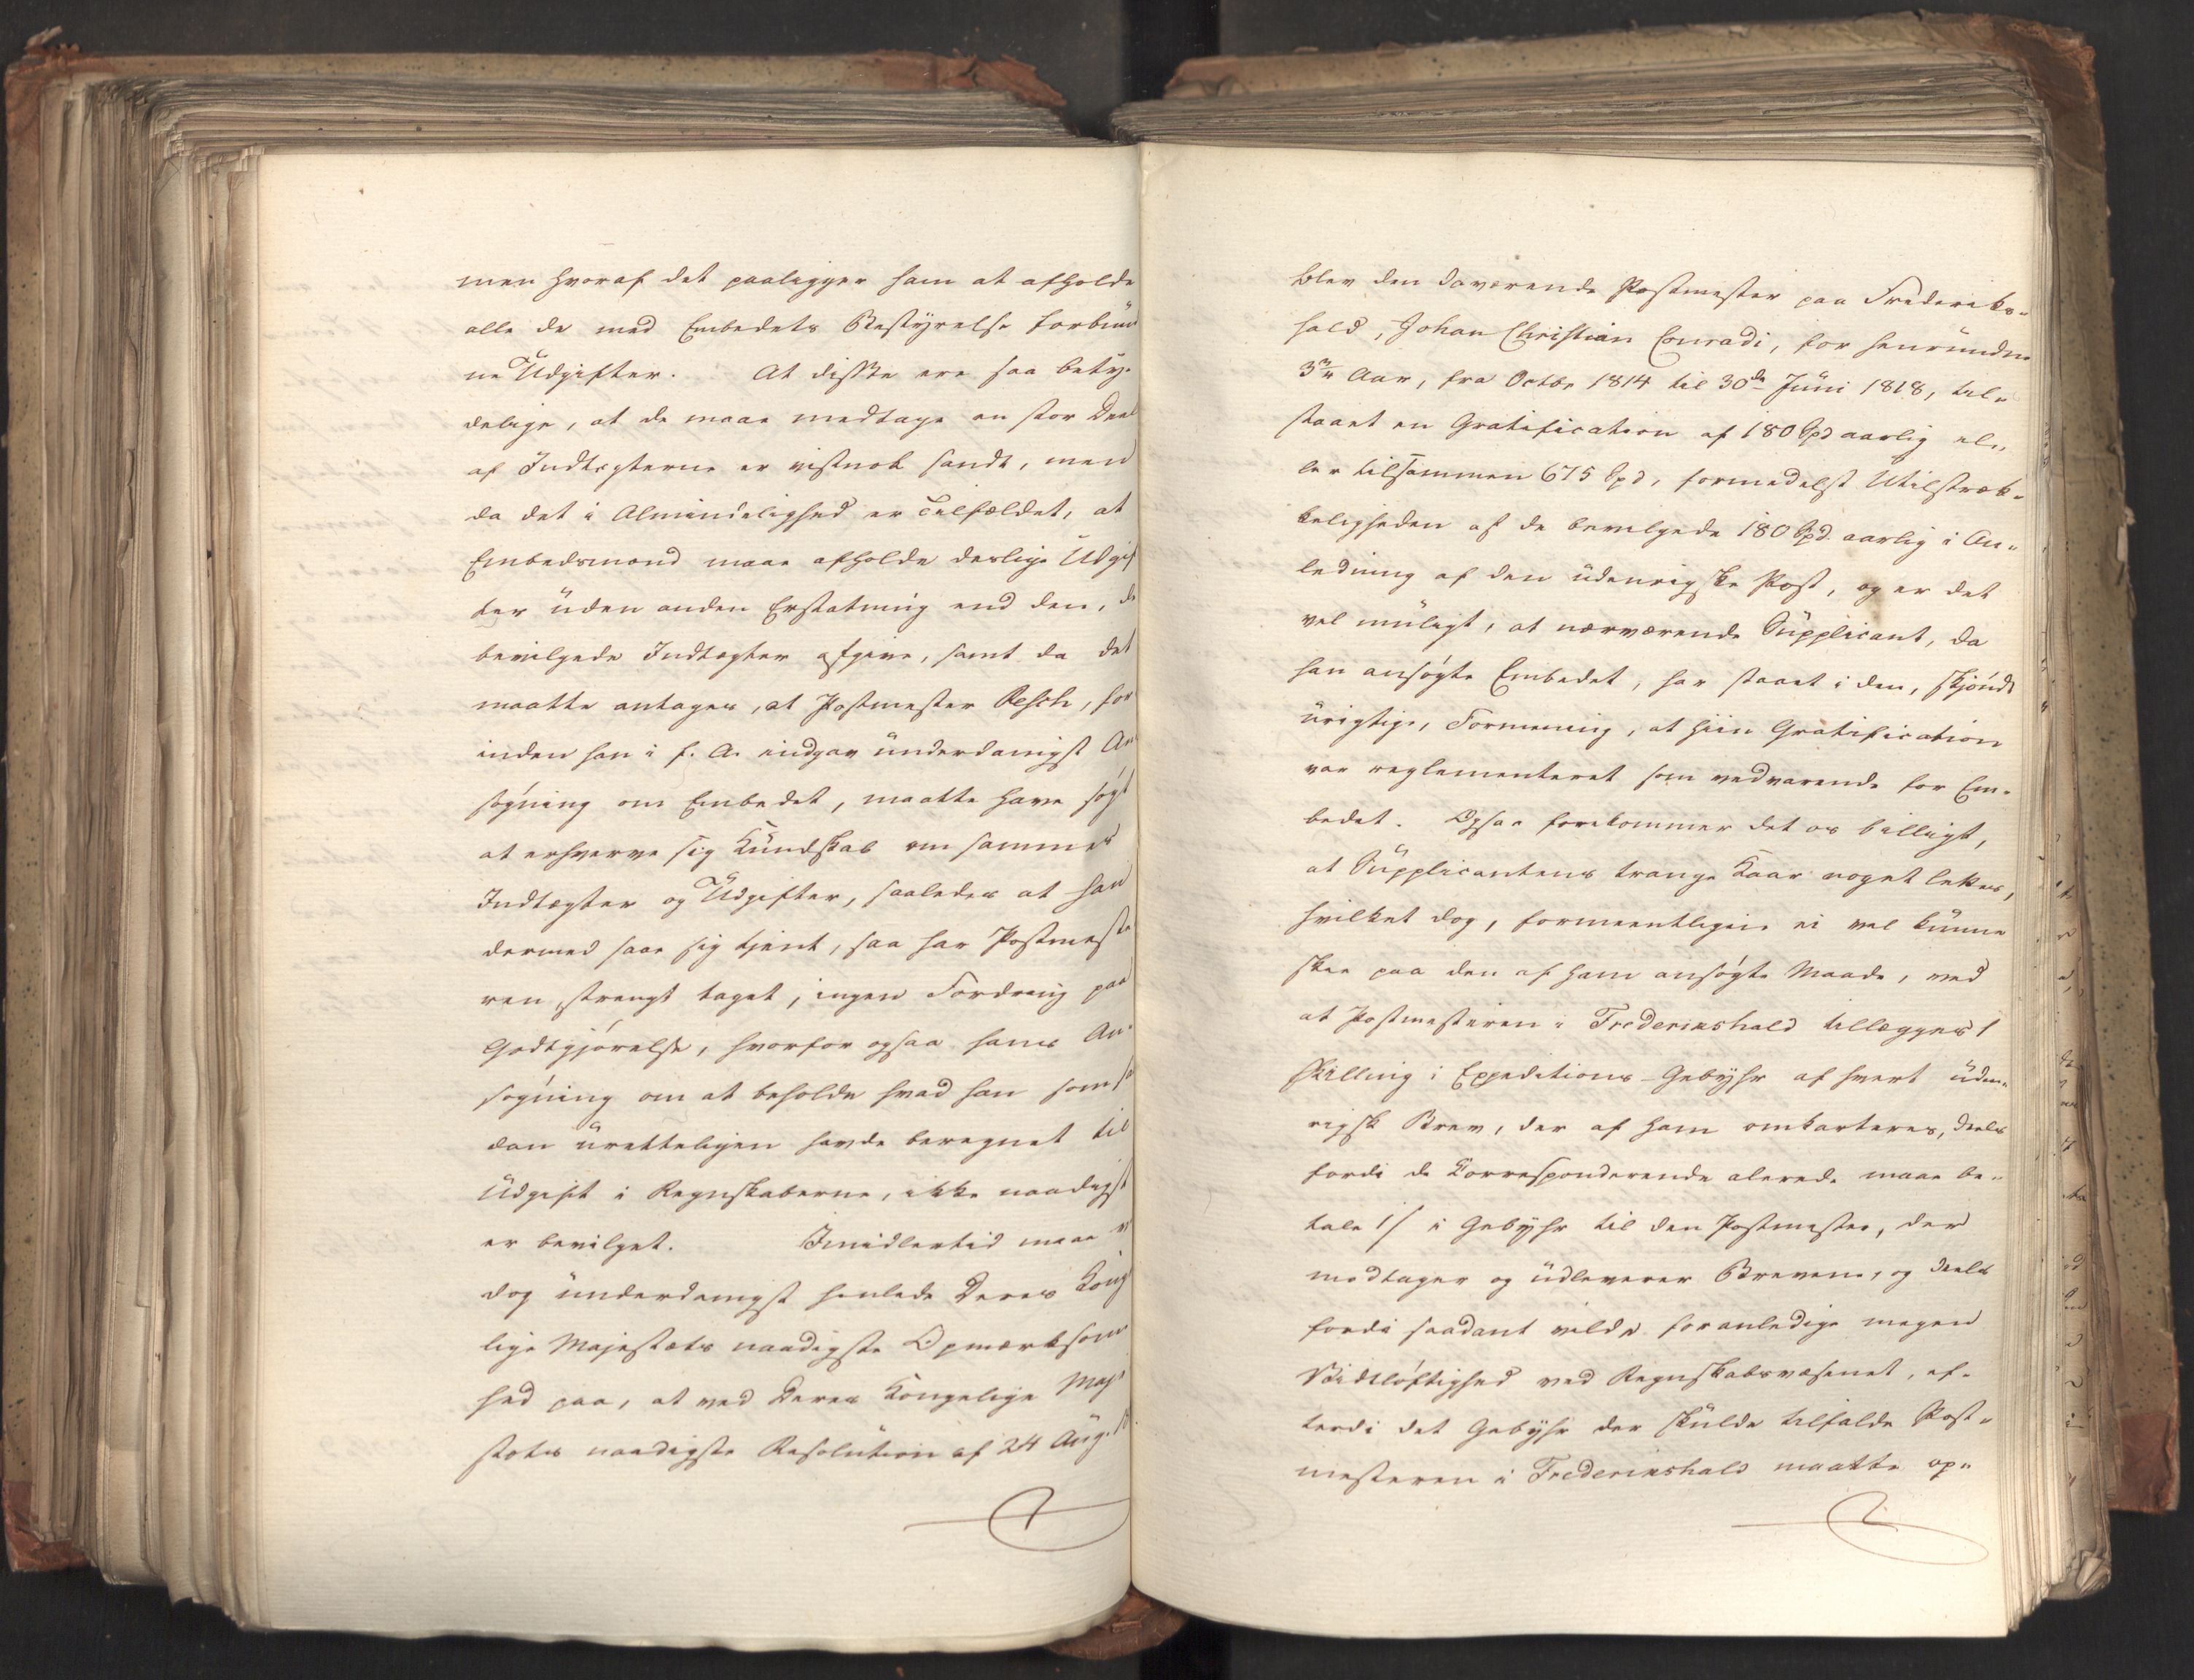 men hvoraf det paaligger ham at afholde
alle de med Embedets Bestyrelse forbund
ne Udgifter. At disse ere saa bety-
delige, at de maae medtage en stor Deel
af Indtægterne er vistnok sandt, men
da det i Almindelighed er Tilfældet, at
Embedsmænd maae afholde deslige Udgif
ter uden anden Erstatning end den, de
bevilgede Indtægter afgive, samt da det
maatte antages, at Postmester Resch, for
inden han i f. A. indgav underdanigst An
søgning om Embedet, maatte have søgt
at erhverve sig Kundskab om sammes
Indtægter og Udgifter, saaledes at han
dermed saae sig tjent, saa har Postmeste
ren, strengt taget, ingen Fordring paa
Godtgjørelse, hvorfor ogsaa hans An-
søgning om at beholde hvad han som sa
dan uretteligen havde beregnet til
Udgift i Regnskaberne, ikke naadigst
er bevilget. Imidlertid maae vi
dog underdanigst henlede Deres Konge
lige Majestæts naadigste Opmærksom
hed paa, at ved Deres Kongelige Maje
stæts naadigste Resolution af 24 Aug. 18
blev den daværende Postmester paa Frederiks-
hald, Johan Christian Conradi, for henrundne
3¾ Aar, fra Octbr 1814 til 30de Juni 1818, til-
staaet en Gratification af 180 Spd aarlig el-
ler tilsammen 675 Spd, formedelst Utilstræk-
keligheden af de bevilgede 180 Spd. aarlig i An-
ledning af den udenrigske Post, og er det
vel muligt, at nærværende Supplicant, da
han ansøgte Embedet, har staaet i den, skjøndt
urigtige, Formening, at hiin Gratification
var reglementeret som vedvarende for Em-
bedet. Ogsaa forekommer det os billigt,
at Supplicantens trange Kaar noget lettes,
hvilket dog, formeentligen ei vel kunne
skee paa den af ham ansøgte Maade, ved
at Postmesteren i Frederikshald tillægges 1
Skilling i Expeditions-Gebyhr af hvert uden-
rigsk Brev, der af ham omkarteres, deels
fordi de Korresponderende alerede maae be-
tale 1 s i Gebyhr til den Postmester, der
modtager og udleverer Brevene, og deels
fordi saadant vilde foranledige megen
Vidtløftighed ved Regnskabsvæsenet, ef-
terdi det Gebyhr der skulde tilfalde Post-
mesteren i Frederikshald maatte op-